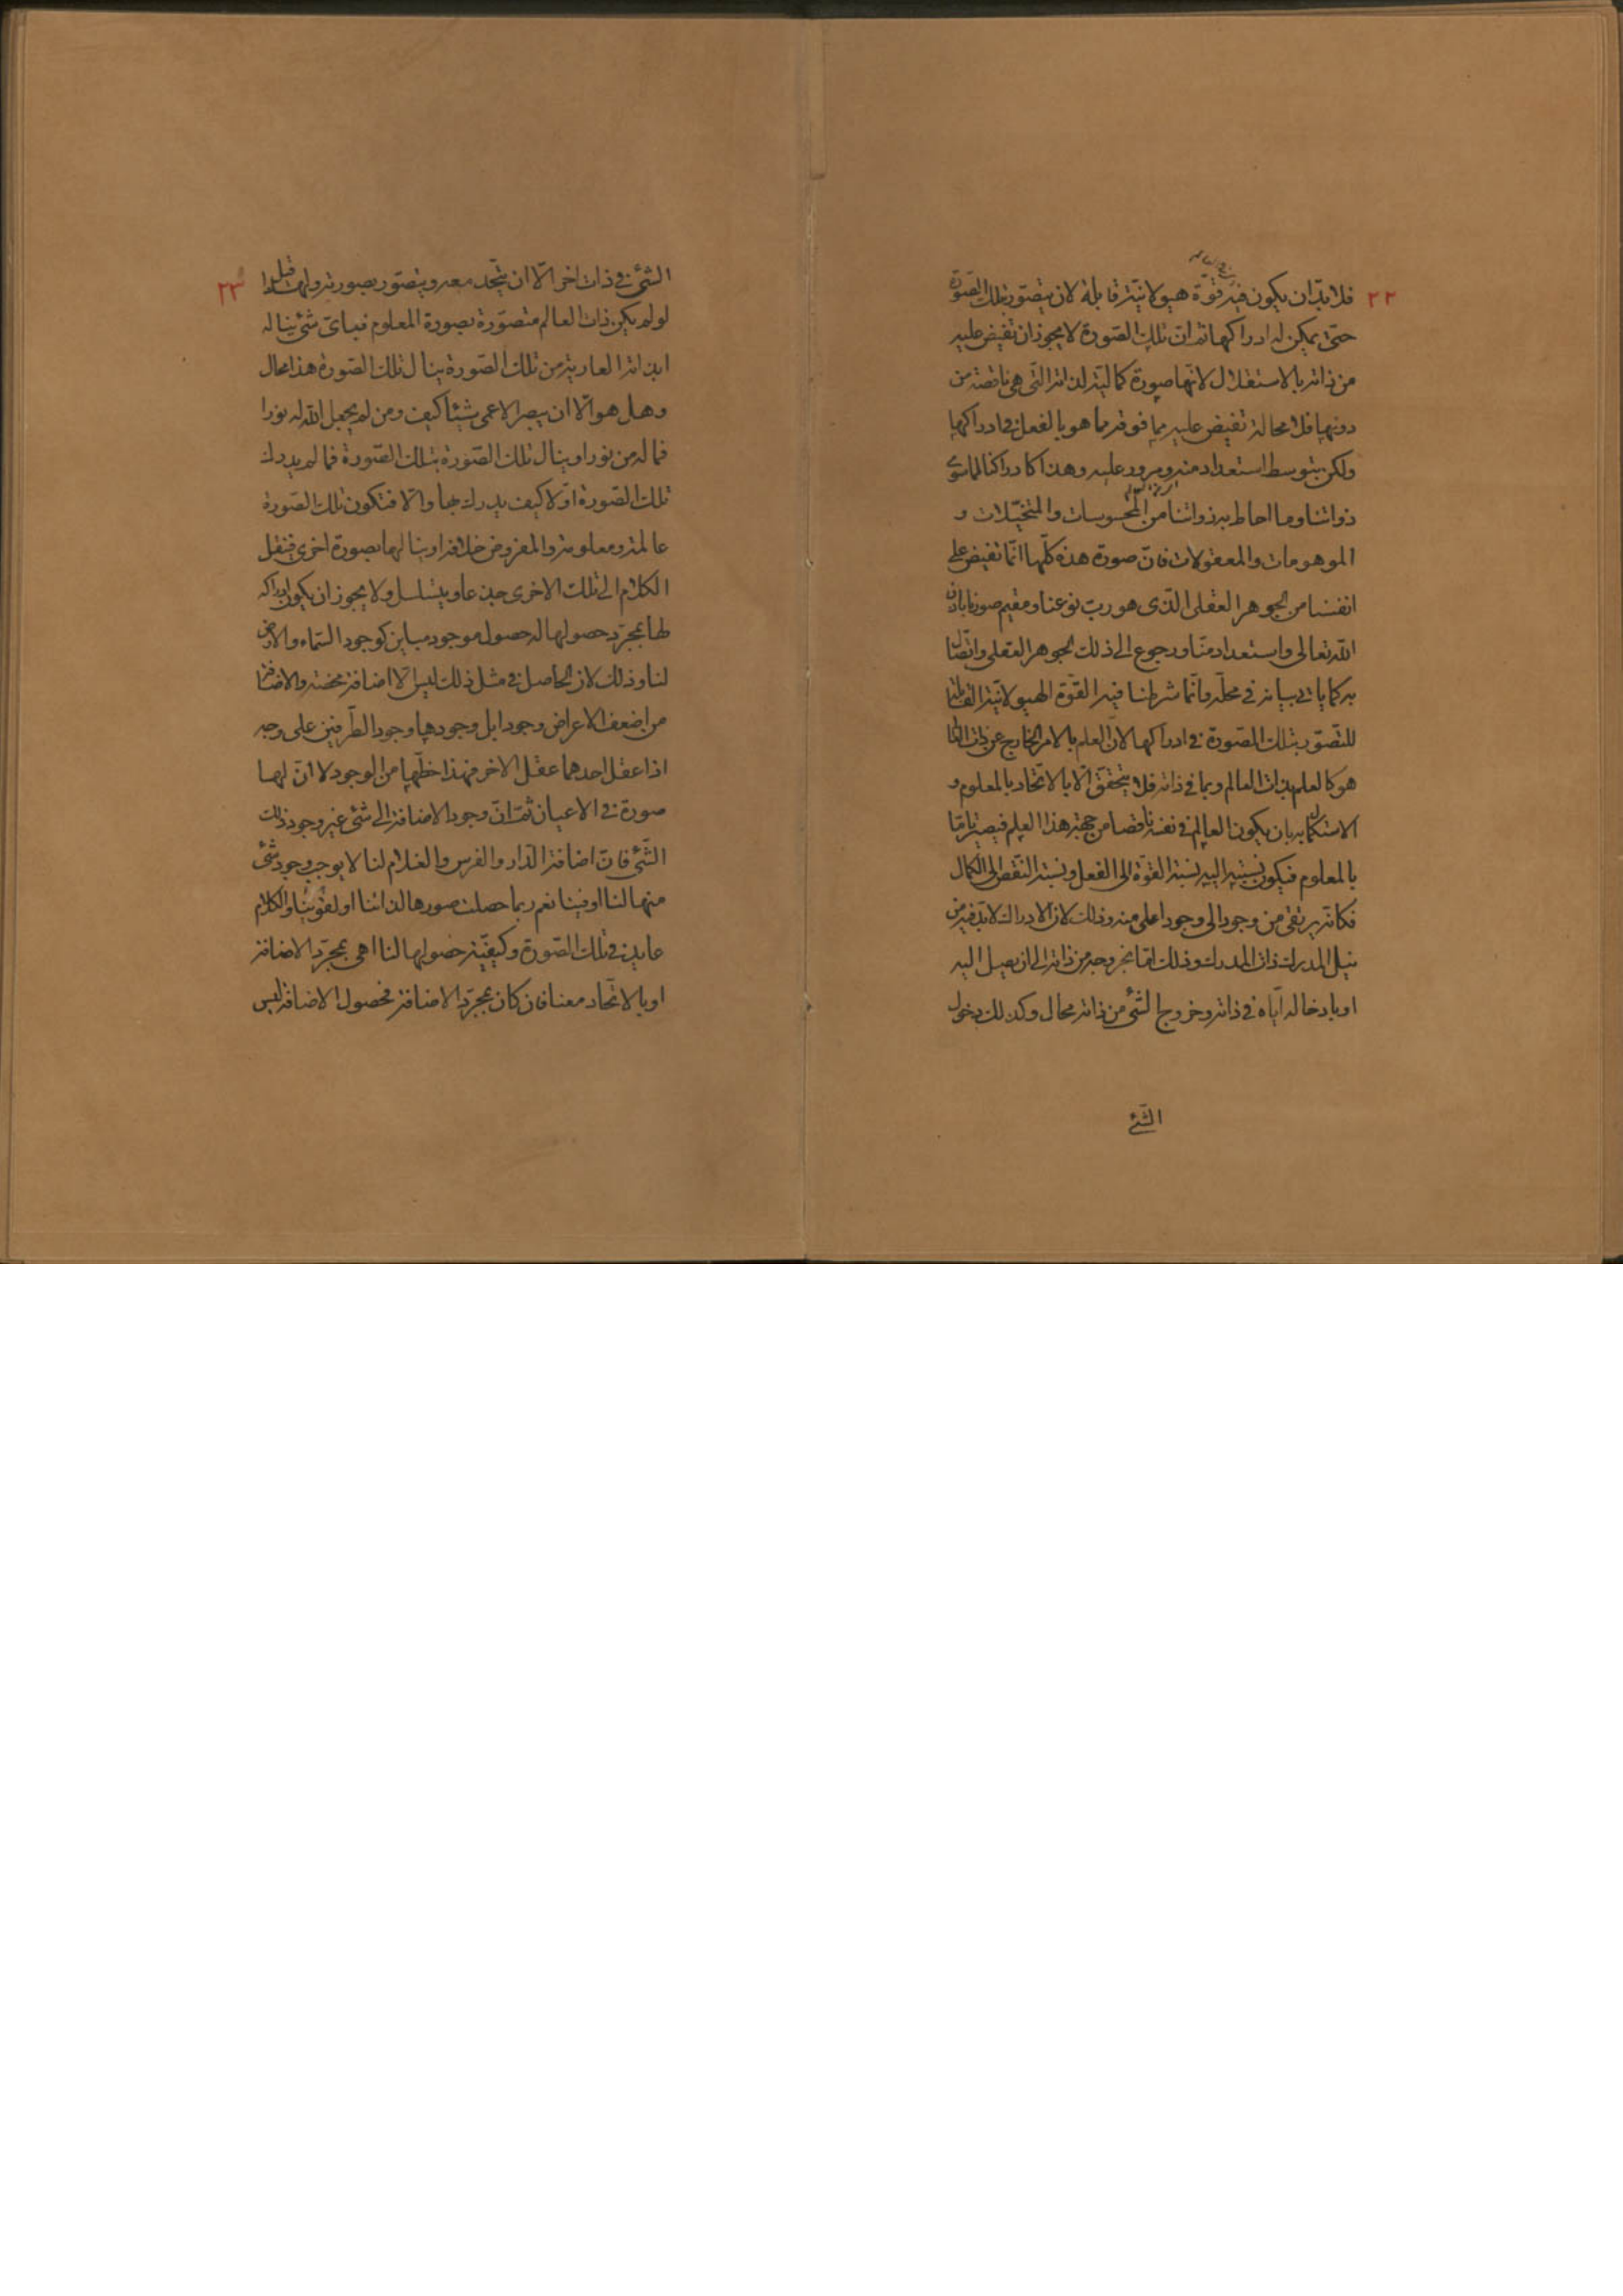 ٢٢
فلا بدّ ان يكون فيه قوّة هيولانيّة قابلة لان يتصوّر بتلك الصّورة
حتّى يمكن له ادراكها ثم انّ تلك الصّورة لا يجوز ان تفيض عليه
من ذاته بالاستقلال لانّها صورة كماليّة لذاته الّتى هى ناقصة من
دونها فلا محالة تفيض عليه مما فوقه مما هو بالفعل فى ادراكها
ولكن بتوسط استعداد منه و مرور عليه وهذا كادراكنا لما سوى
ذواتنا وما احاط به ذواتنا من المحسوسات والمتخيّلات و
الموهومات والمعقولات فانّ صورة هذه كلّها انّما تفيض على
انفسنا من الجوهر العقلى الّذى هو ربّ نوعنا ومقيم صورنا باذن
الله تعالى واستعداد منّا ورجوع الى ذلك الجوهر العقلى واتّصال
به كما ياتى بيانه فى محلّه وانّما شرطنا فيه القوّة الهيولانيّة القابلة
للتصوّر بتلك الصّورة فى ادراكها لانّ العلم بالامر الخارج عن ذات العالم
هو كالعلم بذات العالم وبما فى ذاته فلا يتحقّق الّا بالاتّحاد بالمعلوم و
الاستكمال به بان يكون العالم فى نفسه ناقصا من جهة هذا العلم فيصير تامّا
بالمعلوم فيكون نسبته اليه نسبة القوّة الى الفعل ونسبة النّقص الى الكمال
فكانّه يرتقى من وجود الى وجود اعلى منه وذلك لانّ الادراك لا بدّ فيه من
نيل المدرك ذات المدرك وذلك امّا بخروجه من ذاته الى ان يصل اليه
او بادخاله ايّاه فى ذاته وخروج الشّئ من ذاته محال وكذلك دخول
الشّئ
٢٣
الشّئ فى ذات اخر الّا ان يتّحد معه ويتصوّر بصورته
لو لم يكن ذات العالم متصوّرة بصورة المعلوم فباىّ شئ يناله
ابذاته العارية من تلك الصّورة ينال تلك الصّورة هذا محال
وهل هو الّا ان يبصر الاعمى شيئا كيف ومن لم يجعل الله له نورا
فما له من نور او ينال تلك الصّورة بتلك الصّورة فما لم يدرك
تلك الصّورة اوّلا كيف يدرك بها والّا فتكون تلك الصّورة
عالمة ومعلومة والمفروض خلافه او ينالها بصورة اخرى فينقل
الكلام الى تلك الاخرى جذعا ويتسلسل ولا يجوز ان يكون ادراكه
لها بمجرّد حصولها له حصول موجود مباين كوجود السّماء والارض
لنا وذلك لانّ الحاصل فى مثل ذلك ليس الّا اضافة محضة والاضافة
من اضعف الاعراض وجودا بل وجودها وجود الطّرفين على وجه
اذا عقل احدهما عقل الاخر فهذا حظّها من الوجود لا انّ لها
صورة فى الاعيان ثمّ انّ وجود الاضافة الى شئ غير وجود ذلك
الشّئ فانّ اضافة الدّار والفرس والغلام لنا لا يوجب وجود شئ
منها لنا او فينا نعم ربما حصلت صورها لذاتنا او لقوينا والكلام
عايد فى تلك الصّورة وكيفيّة حصولها لنا اهى بمجرّد الاضافة
او بالاتّحاد معنا فان كان بمجرّد الاضافة فحصول الاضافة ليس